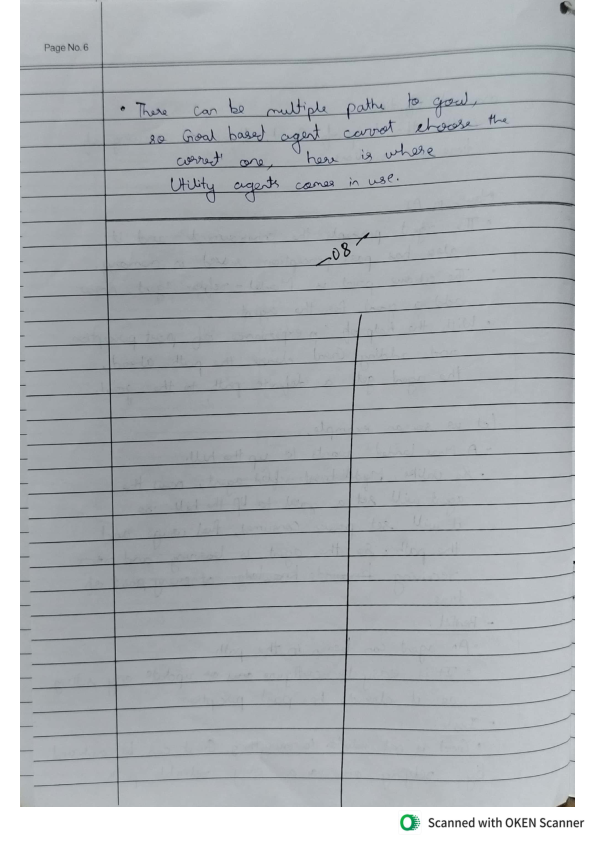 Page No. 6
• There can be multiple paths to goal,
so Goal based agent cannot choose the
correct one, here is where
Utility agents comes in use.
08
Scanned with OKEN Scanner